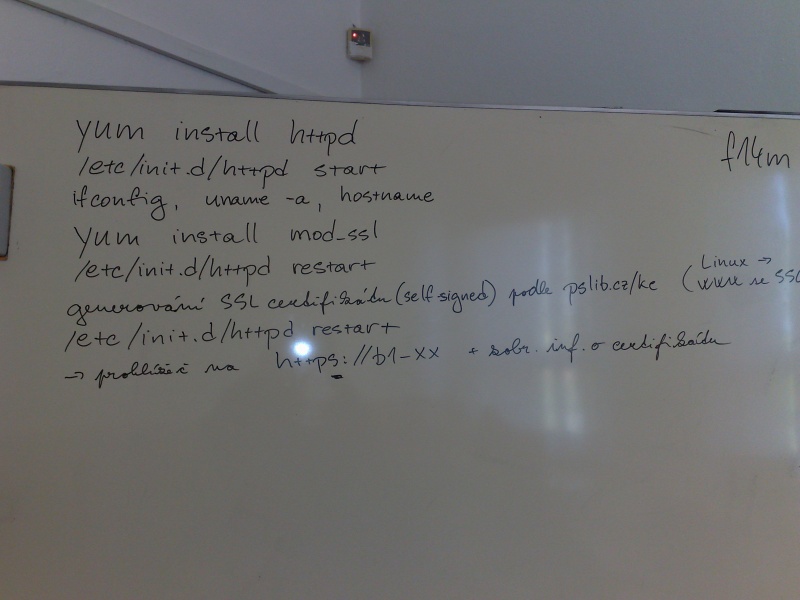 yum install httpd
f14m
/etc/init.d/httpd start
ifconfig, uname -a, hostname
yum install mod_ssl
/etc/init.d/httpd restart
generování SSL certifikátu (self signed) podle pslib.cz/ke (Linux → www se SSL
/etc/init.d/httpd restart
→ prohlížeč na https://b1-xx + zobr. inf. o certifikátu